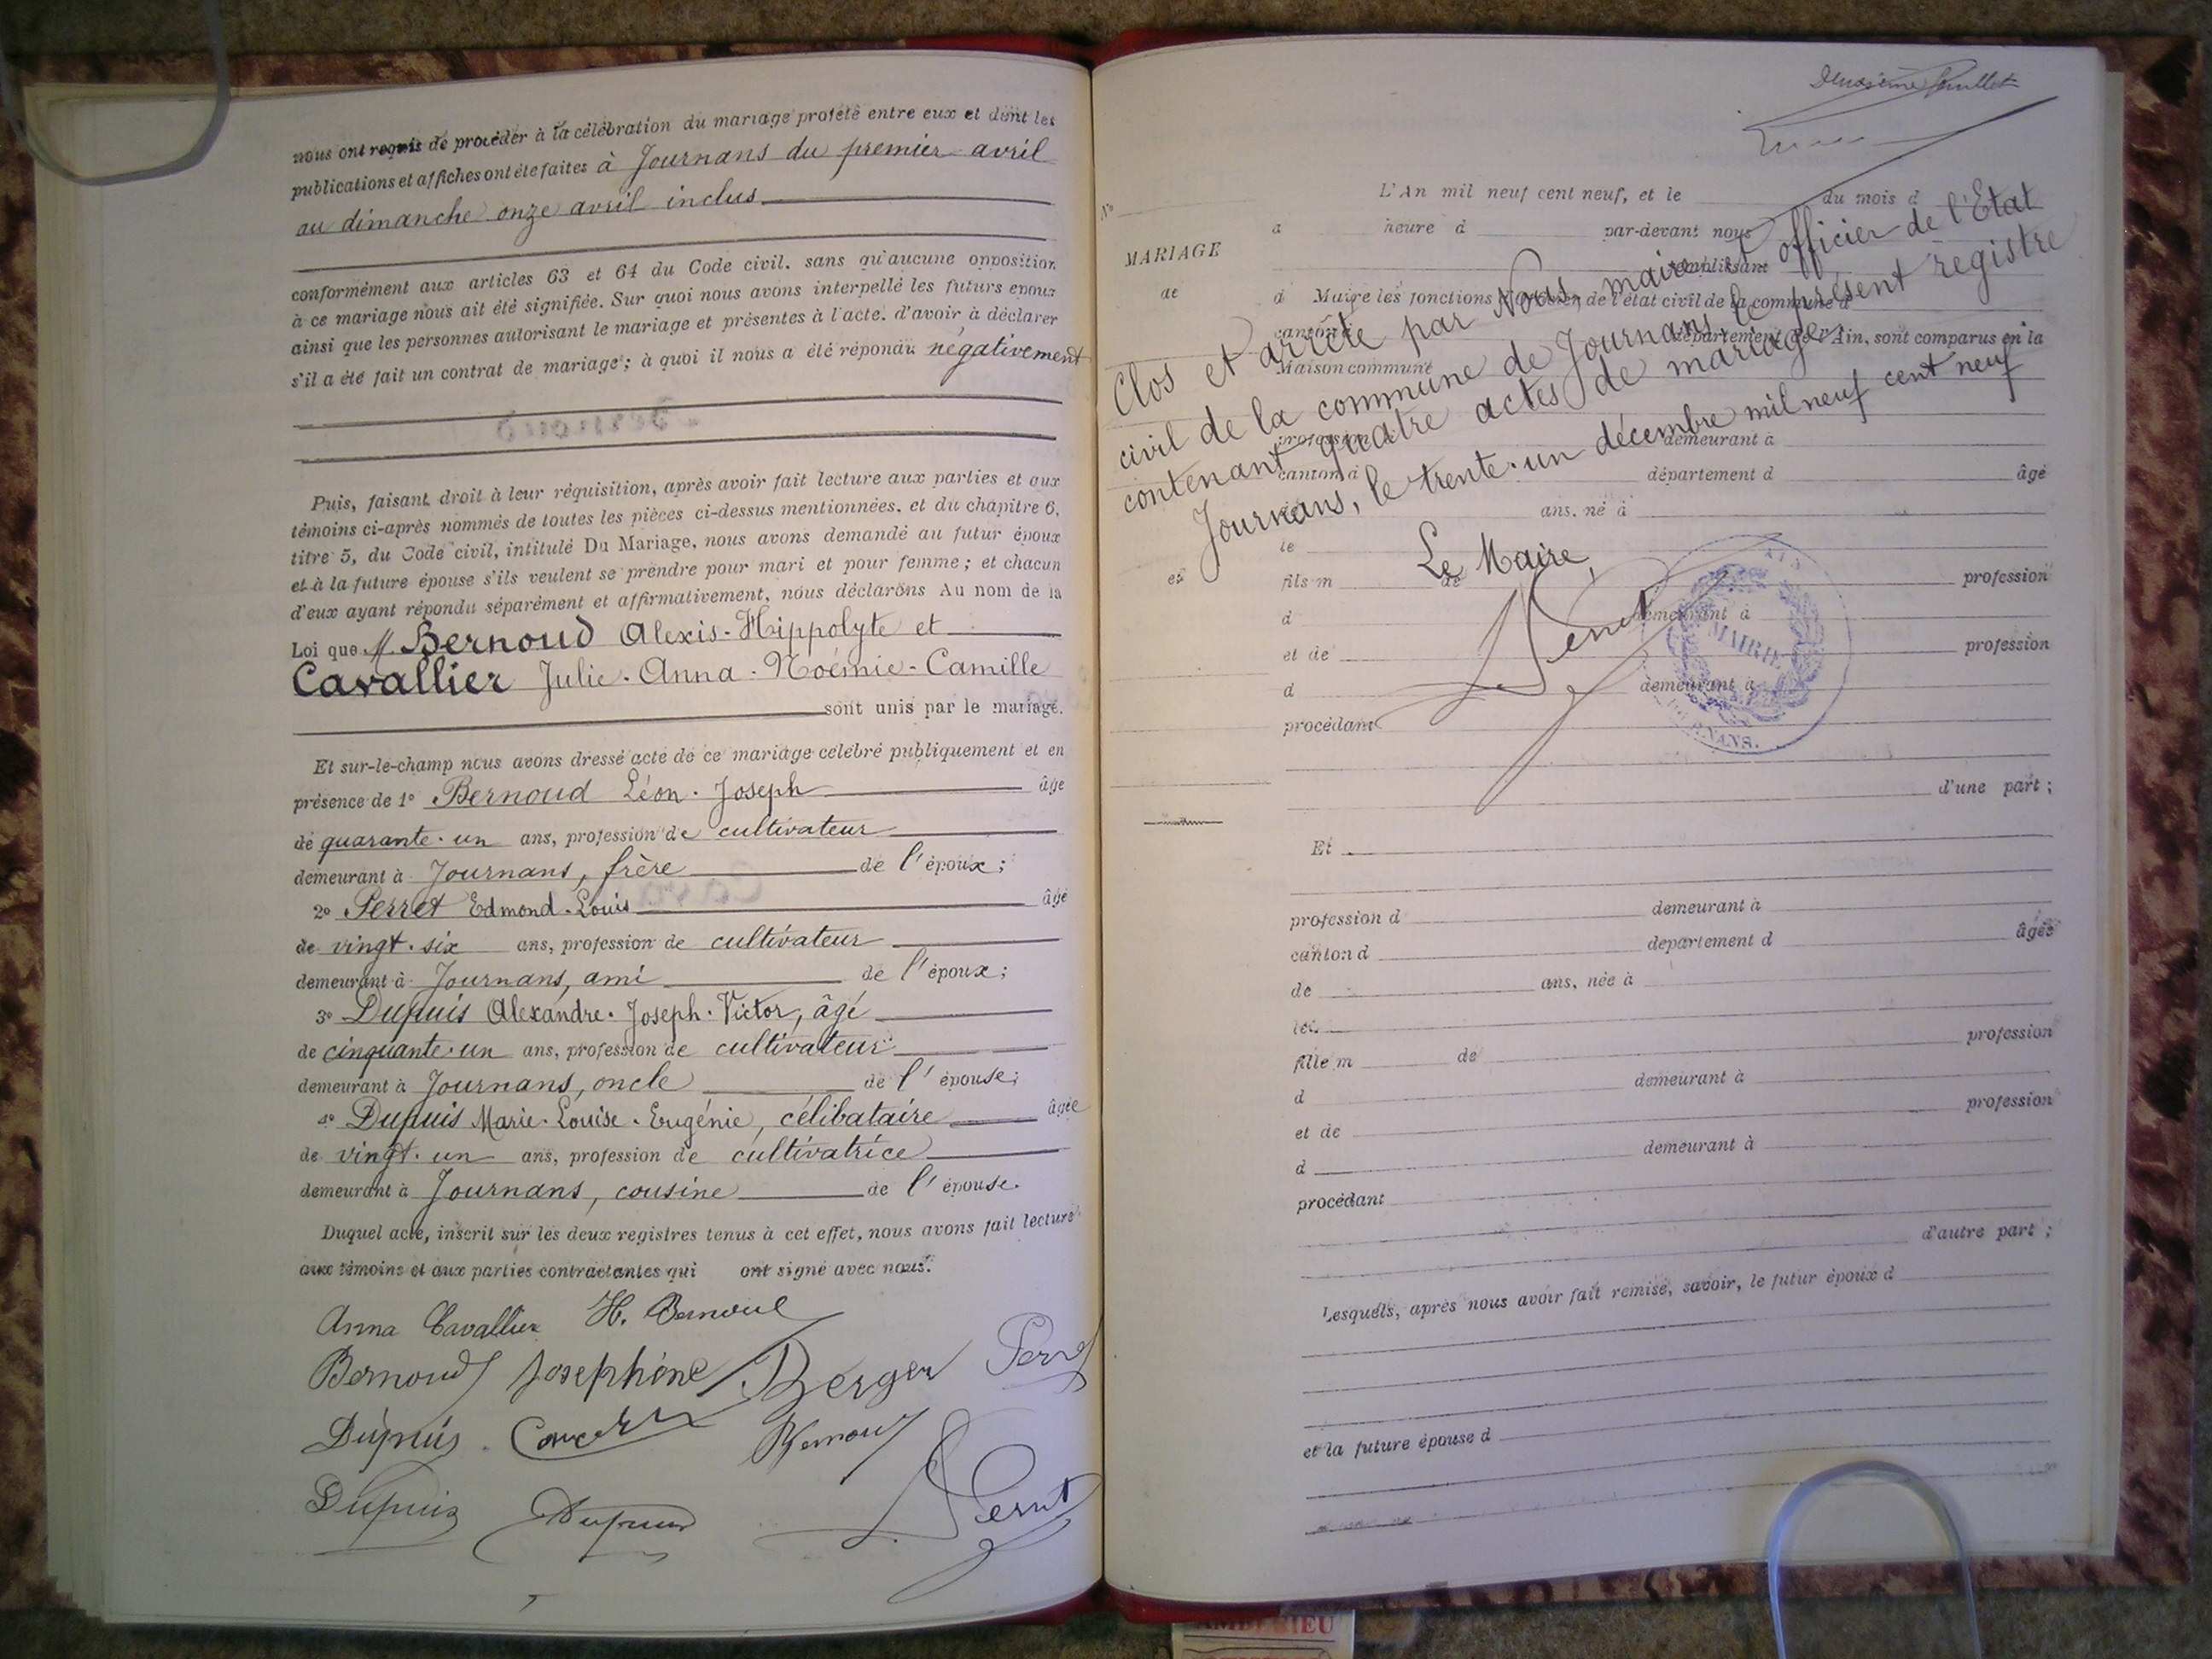 nous ont requis de procéder à la célébration du mariage projeté entre eux et dont les
publications et affiches ont été faites à Journans du premier avril
au dimanche onze avril inclus
conformément aux articles 63 et 64 du Code civil, sans qu'aucune opposition
à ce mariage nous ait été signifiée. Sur quoi nous avons interpellé les futurs époux
ainsi que les personnes autorisant le mariage et présentes à l'acte, d'avoir à déclarer
s'il a été fait un contrat de mariage ; à quoi il nous a été répondu négativement
Puis, faisant droit à leur réquisition, après avoir fait lecture aux parties et aux
témoins ci-après nommés de toutes les pièces ci-dessus mentionnées, et du chapitre 6,
titre 5, du Code civil, intitulé Du Mariage, nous avons demandé au futur époux
et à la future épouse s'ils veulent se prendre pour mari et pour femme ; et chacun
d'eux ayant répondu séparément et affirmativement, nous déclarons Au nom de la
Loi que M. Bernoud Alexis-Hippolyte et
Cavallier Julie-Anna-Noémie-Camille
sont unis par le mariage.
Et sur-le-champ nous avons dressé acte de ce mariage célébré publiquement et en
présence de 1° Bernoud Léon-Joseph âgé
de quarante-un ans, profession de cultivateur
demeurant à Journans, frère de l'époux ;
2° Perret Edmond-Louis âgé
de vingt-six ans, profession de cultivateur
demeurant à Journans, ami de l'époux ;
3° Dupuis Alexandre-Joseph-Victor, âgé
de cinquante-un ans, profession de cultivateur
demeurant à Journans, oncle de l'épouse ;
4° Dupuis Marie-Louise-Eugénie, célibataire âgée
de vingt-un ans, profession de cultivatrice
demeurant à Journans, cousine de l'épouse.
Duquel acte, inscrit sur les deux registres tenus à cet effet, nous avons fait lecture
aux témoins et aux parties contractantes qui ont signé avec nous.
Anna Cavallier H. Bernoud
Bernoud Joséphine Berger Perret
Dupuis Bernoud
Dupuis Dupuis Pernet
Deuxième feuillet
N°
MARIAGE
de
et
L'An mil neuf cent neuf, et le du mois d
à heure d par-devant nous
remplissant
d Maire les fonctions d'officier de l'état civil de la commune d
canton d département de l'Ain, sont comparus en la
Maison commune
Clos et arrêté par Nous, maire et officier de l'Etat
civil de la commune de Journans, le présent registre
contenant quatre actes de mariage.
Journans, le trente-un décembre mil neuf cent neuf
Le Maire,
profession demeurant à
canton d département d âgé
ans, né à
le
fils m de profession
d demeurant à
et de profession
d demeurant à
procédant
MAIRIE
d'une part ;
Et
profession d demeurant à
canton d département d âgée
de ans, née à
le
fille m de profession
d demeurant à
et de profession
d demeurant à
procédant
d'autre part ;
Lesquels, après nous avoir fait remise, savoir, le futur époux d
et la future épouse d